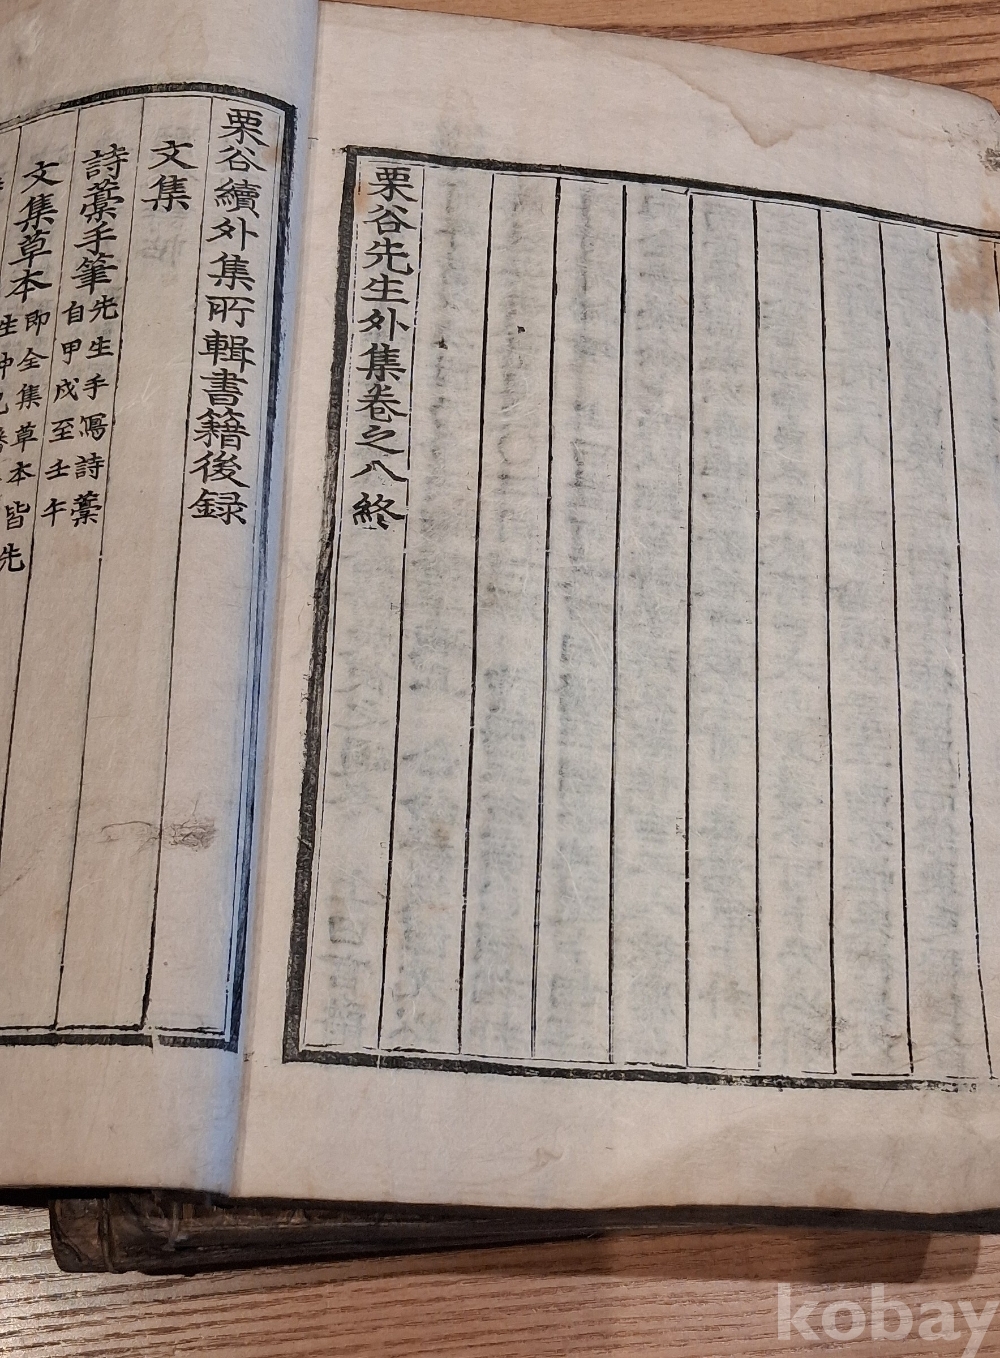 栗谷先生外集卷之八終
栗谷續外集所輯書籍後録
文集
詩藁手筆 先生手寫詩藁
自甲戌至壬午
文集草本 即全集草本皆先
kobay